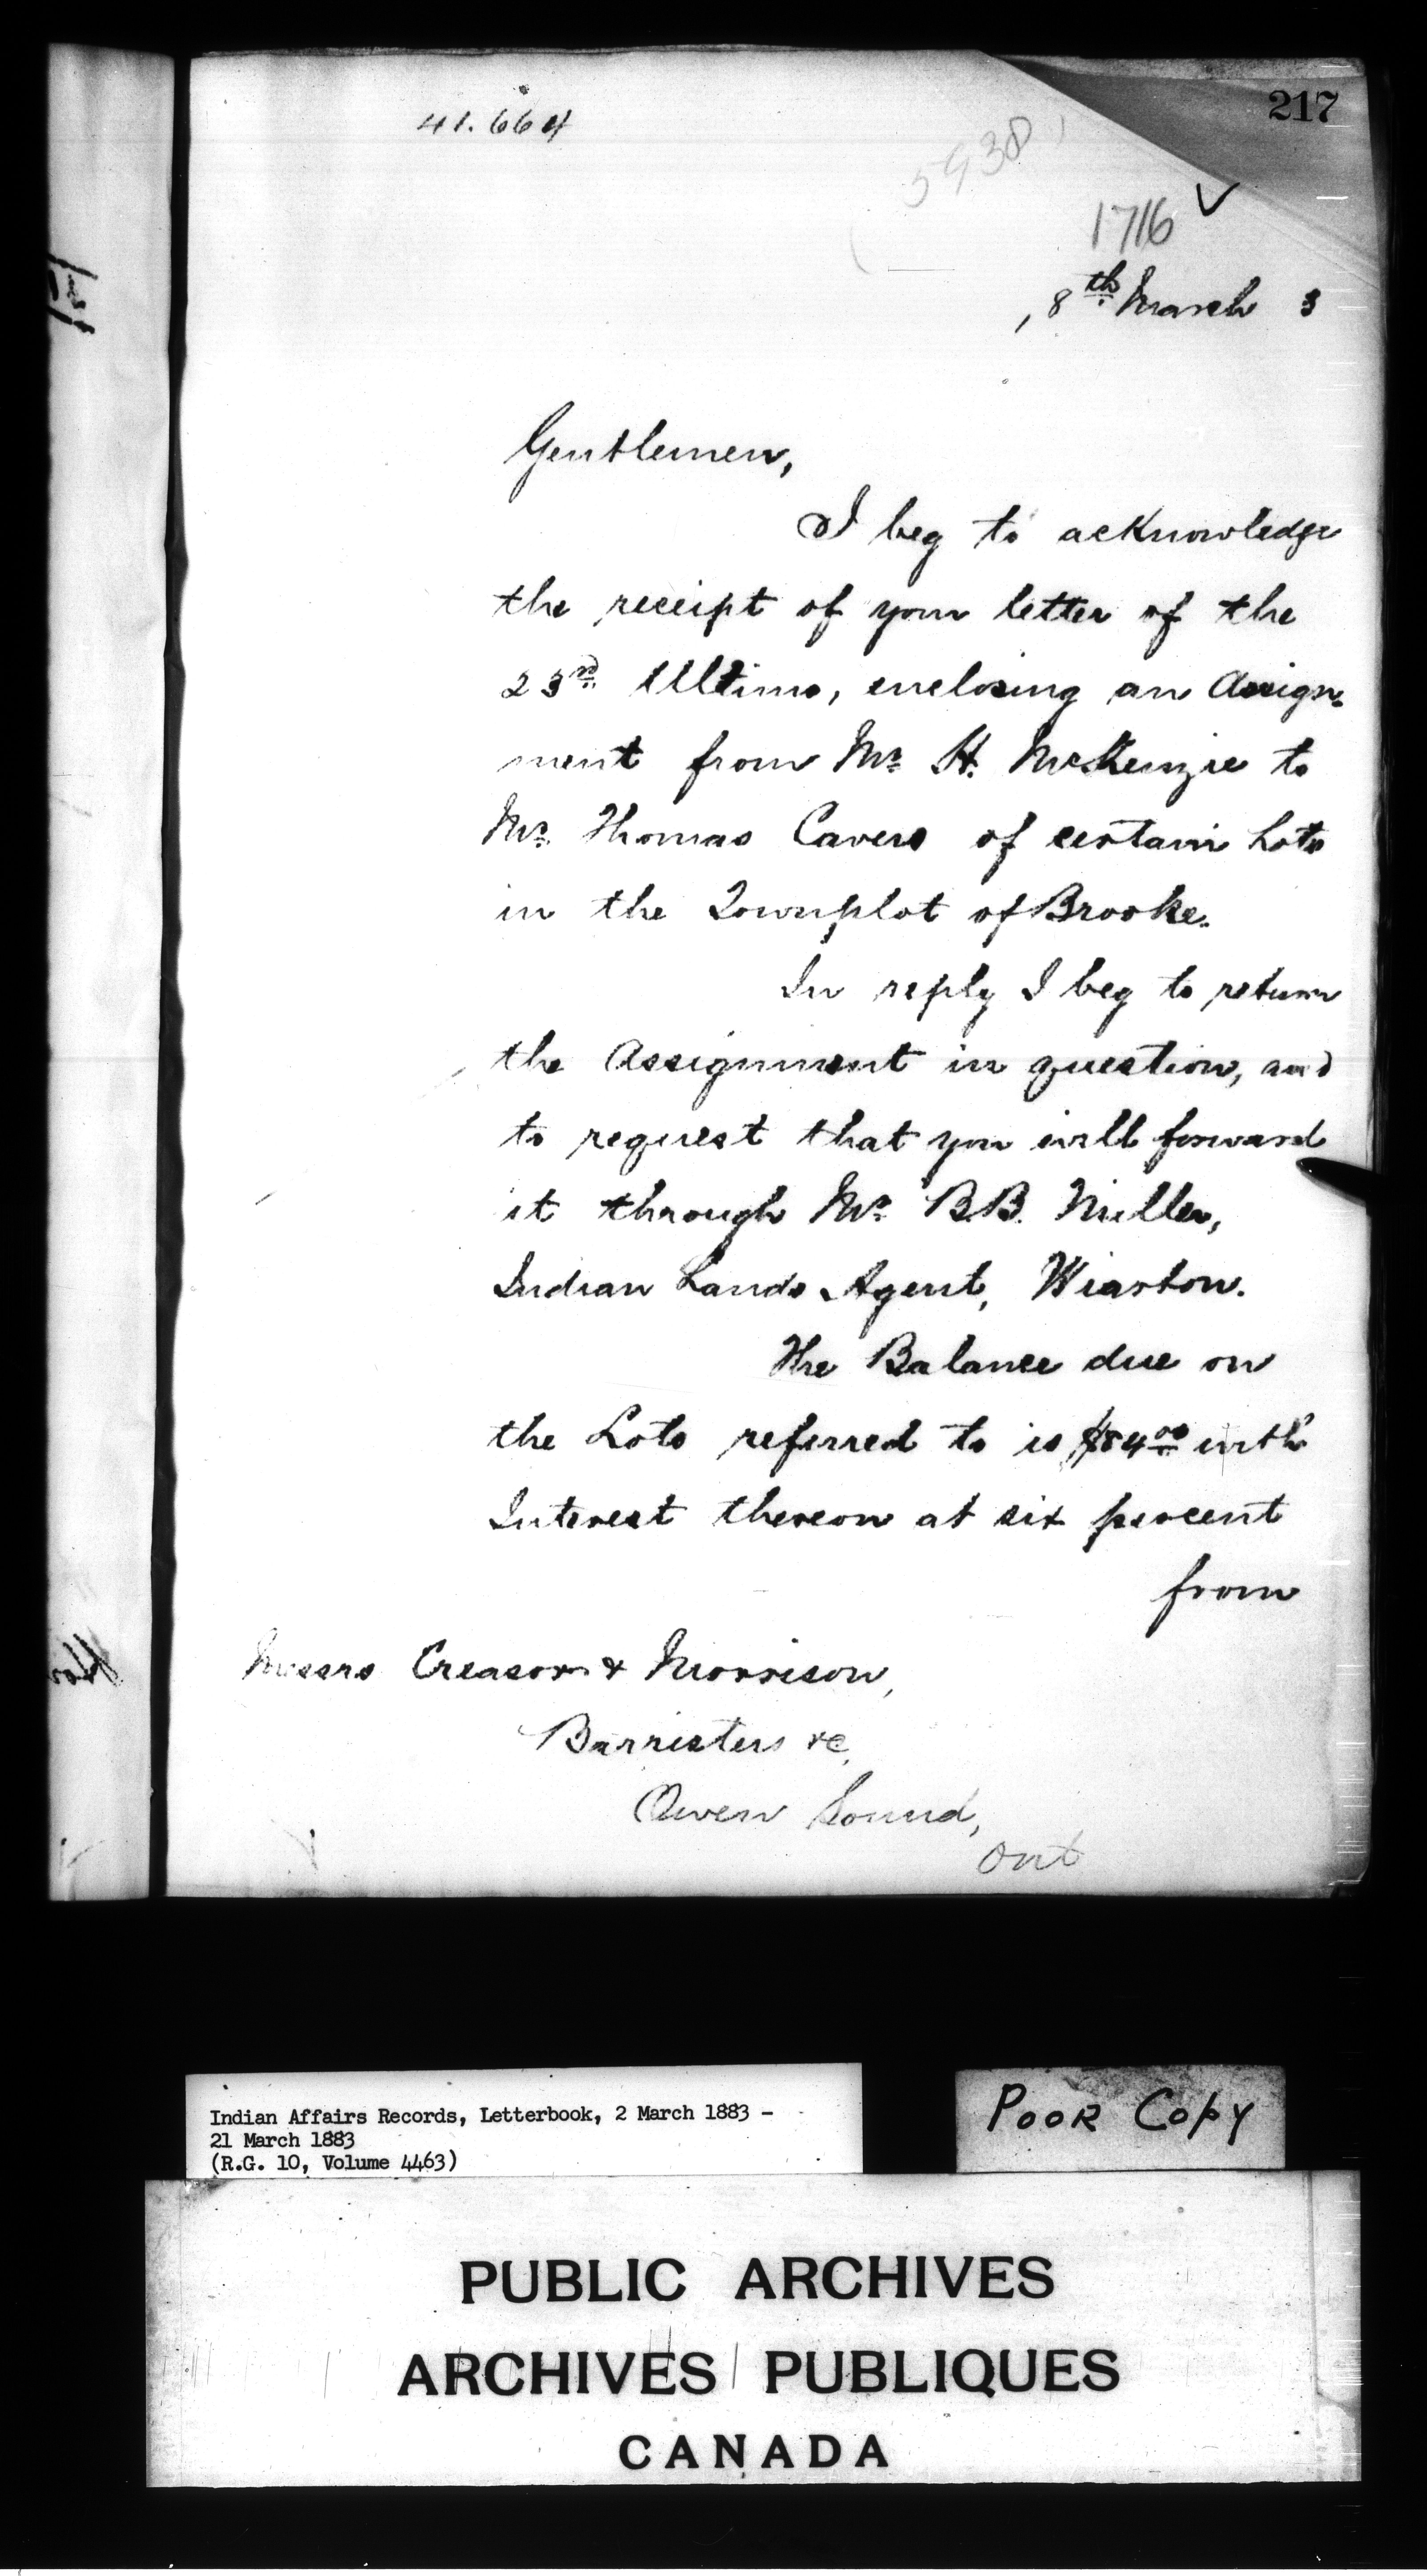 217
41.664
5938
1716
, 8th March 3
Gentlemen,
I beg to acknowledge
the receipt of your letter of the
23rd Ultimo, enclosing an Assign-
ment from Mr. H. McKenzie to
Mr. Thomas Cavers of certain Lots
in the Townplot of Brooke.
In reply I beg to return
the Assignment in question, and
to request that you will forward
it through Mr. B.B. Miller,
Indian Lands Agent, Wiarton.
The Balance due on
the Lots referred to is $84.00 with
Interest thereon at six percent
from
Messrs Creasor & Morrison,
Barristers &c,
Owen Sound,
Ont
Indian Affairs Records, Letterbook, 2 March 1883 -
21 March 1883
(R.G. 10, Volume 4463)
POOR COPY
PUBLIC ARCHIVES
ARCHIVES PUBLIQUES
CANADA